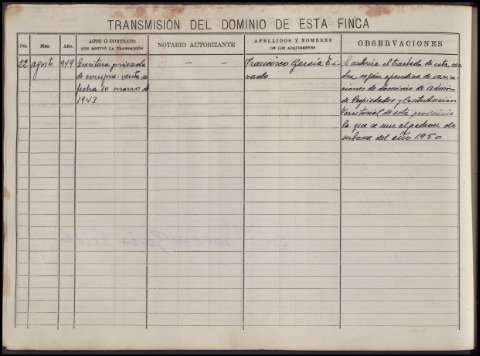 TRANSMISIÓN DEL DOMINIO DE ESTA FINCA
Día. Mes. Año. ACTO O CONTRATO QUE MOTIVÓ LA TRANSMISIÓN NOTARIO AUTORIZANTE APELLIDOS Y NOMBRES DE LOS ADQUIRENTES OBSERVACIONES
22 agosto 949 Escritura privada — — Francisco García
de compra-venta
fecha 10 marzo de
1943
Se autoriza el traslado de esta
según apéndice de varia-
ciones de dominio de admón
de Propiedades y Contribución
Territorial de esta provincia
la que se une al padrón de
urbana del año 1950